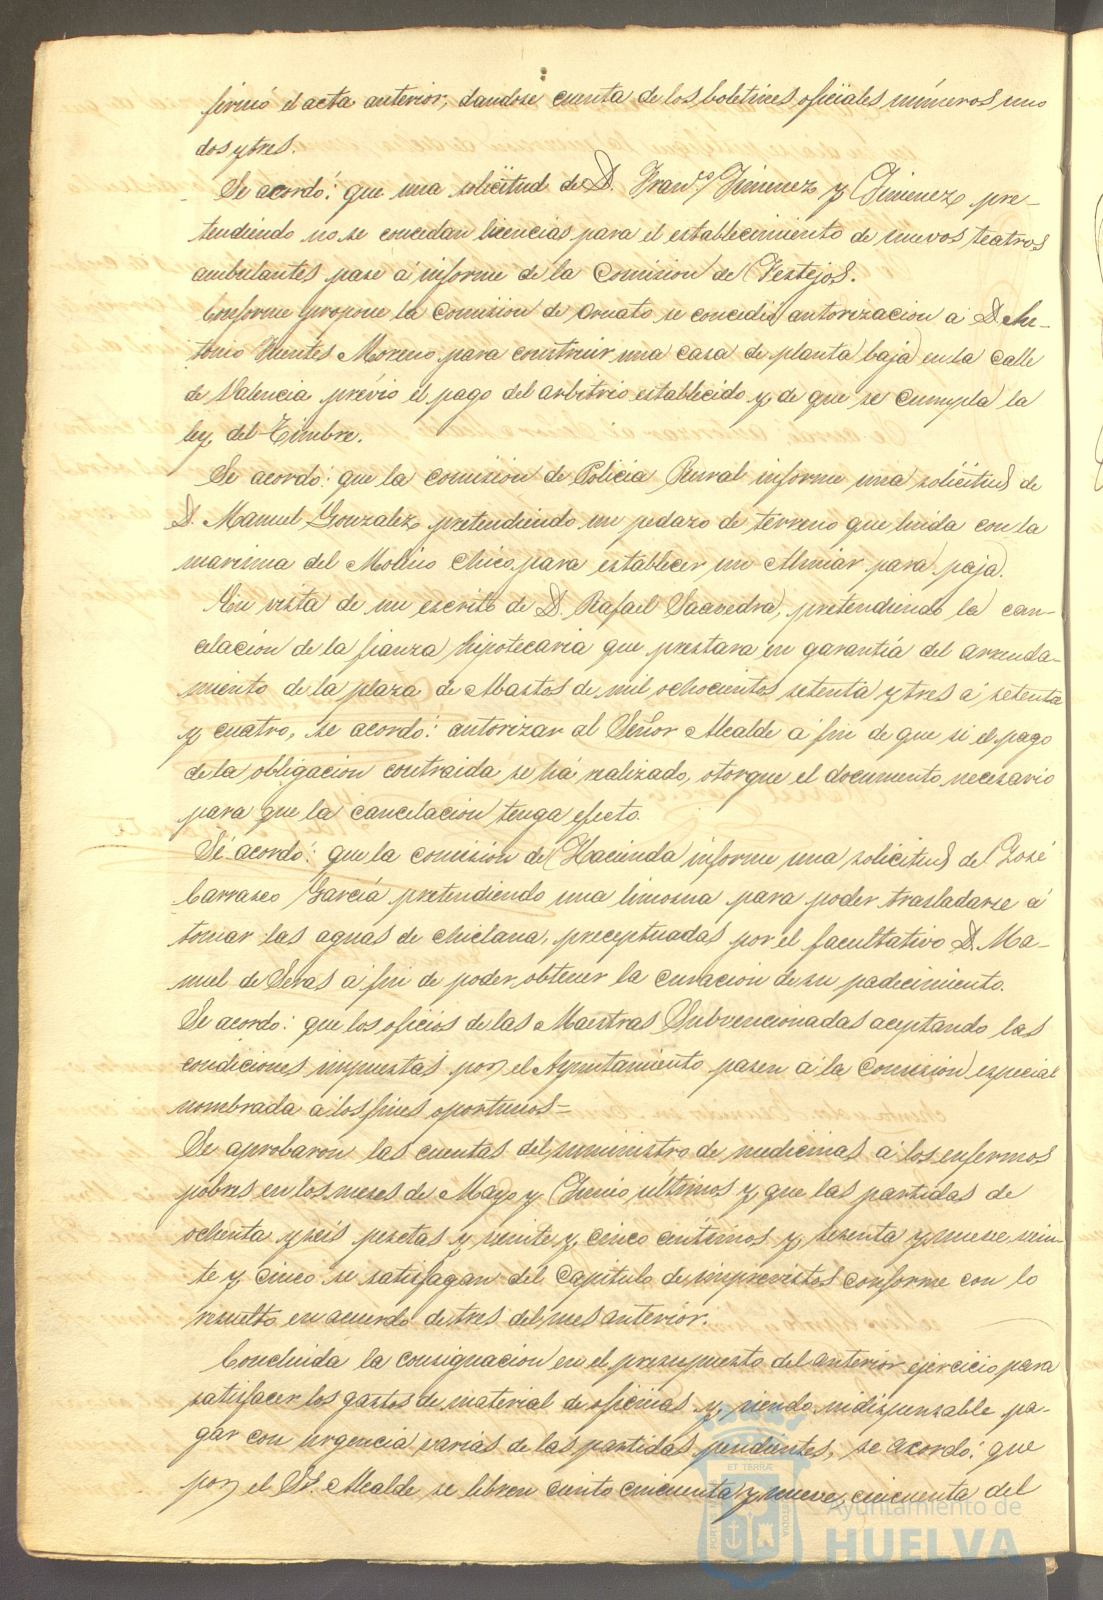 firmó el acta anterior, dandose cuenta de los boletines oficiales números uno
dos y tres.
Se acordó: que una solicitud de D. Fran.co Jimenez y Jimenez pre-
tendiendo no se concedan licencias para el establecimiento de nuevos teatros
ambulantes pase á informe de la Comision de Festejos.
Conforme propone la Comision de Ornato se concedió autorizacion á D. An-
tonio Fuentes Moreno para construir una casa de planta baja en la Calle
de Valencia prévio el pago del arbitrio establecido y de que se cumpla la
ley del Timbre.
Se acordó: que la comision de Policia Rural informe una solicitud de
D. Manuel Gonzalez pretendiendo un pedazo de terreno que linda con la
marisma del Molino Chico para establecer un Almiar para paja.
En vista de un escrito de D. Rafael Saavedra, pretendiendo la can-
celacion de la fianza hipotecaria que prestara en garantia del arrenda-
miento de la plaza de Abastos de mil ochocientos setenta y tres á setenta
y cuatro, se acordó: autorizar al Señor Alcalde á fin de que si el pago
de la obligacion contraida se há realizado, otorgue el documento necesario
para que la cancelacion tenga efecto.
Se acordó: que la comision de Hacienda informe una solicitud de José
Carrasco García pretendiendo una limosna para poder trasladarse á
tomar las aguas de Chiclana, preceptuadas por el facultativo D. Ma-
nuel de Seras á fin de poder obtener la curacion de su padecimiento.
Se acordó: que los oficios de las Maestras Subvencionadas aceptando las
condiciones impuestas por el Ayuntamiento pasen á la Comision especial
nombrada á los fines oportunos=
Se aprobaron las cuentas del suministro de medicinas á los enfermos
pobres en los meses de Mayo y Junio últimos y que las partidas de
ochenta y seis pesetas y veinte y cinco centimos y sesenta y nueve, vein-
te y cinco se satisfagan del Capitulo de imprevistos conforme con lo
resuelto en acuerdo de tres del mes anterior.
Concluida la consignacion en el presupuesto del anterior ejercicio para
satisfacer los gastos de material de oficinas y, siendo indispensable pa-
gar con urgencia varias de las partidas pendientes, se acordó: que
por el Sr. Alcalde se libren ciento cincuenta y nueve, cincuenta del
Ayuntamiento de
HUELVA